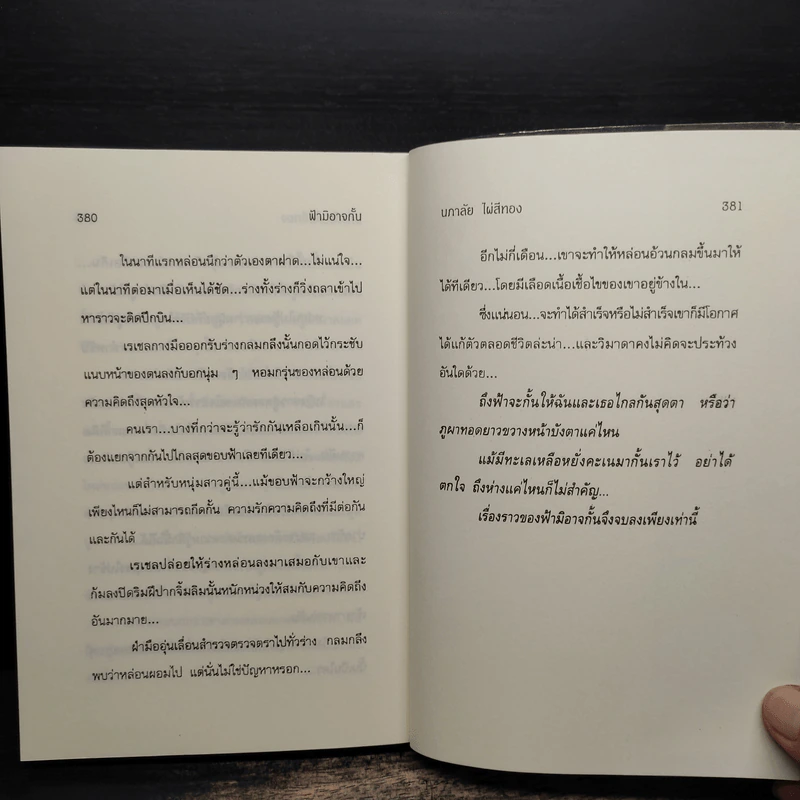 380 ฟ้ามิอาจกั้น
ในนาทีแรกหล่อนนึกว่าตัวเองตาฝาด...ไม่แน่ใจ...
แต่ในนาทีต่อมาเมื่อเห็นได้ชัด...ร่างทั้งร่างก็วิ่งถลาเข้าไป
หาราวจะติดปีกบิน...
เรเชลกางมือออกรับร่างกลมกลึงนั้นกอดไว้กระชับ
แนบหน้าของตนลงกับอกนุ่ม ๆ หอมกรุ่นของหล่อนด้วย
ความคิดถึงสุดหัวใจ...
คนเรา...บางที่กว่าจะรู้ว่ารักกันเหลือเกินนั้น...ก็
ต้องแยกจากกันไปไกลสุดขอบฟ้าเลยทีเดียว...
แต่สำหรับหนุ่มสาวคู่นี้...แม้ขอบฟ้าจะกว้างใหญ่
เพียงไหนก็ไม่สามารถกีดกั้น ความรักความคิดถึงที่มีต่อกัน
และกันได้
เรเชลปล่อยให้ร่างหล่อนลงมาเสมอกับเขาและ
ก้มลงปิดริมฝีปากจิ้มลิ้มนั้นหนักหน่วงให้สมกับความคิดถึง
อันมากมาย...
ฝ่ามืออุ่นเลื่อนสำรวจตรวจตราไปทั่วร่าง กลมกลึง
พบว่าหล่อนผอมไป แต่นั่นไม่ใช่ปัญหาหรอก...
นภาลัย ไผ่สีทอง 381
อีกไม่กี่เดือน...เขาจะทำให้หล่อนอ้วนกลมขึ้นมาให้
ได้ทีเดียว...โดยมีเลือดเนื้อเชื้อไขของเขาอยู่ข้างใน...
ซึ่งแน่นอน...จะทำได้สำเร็จหรือไม่สำเร็จเขาก็มีโอกาศ
ได้แก้ตัวตลอดชีวิตล่ะน่า...และวิมาดาคงไม่คิดจะประท้วง
อันใดด้วย...
ถึงฟ้าจะกั้นให้ฉันและเธอไกลกันสุดตา หรือว่า
ภูผาทอดยาวขวางหน้าบังตาแค่ไหน
แม้มีทะเลเหลือหยั่งคะเนมากั้นเราไว้ อย่าได้
ตกใจ ถึงห่างแค่ไหนก็ไม่สำคัญ...
เรื่องราวของฟ้ามิอาจกั้นจึงจบลงเพียงเท่านี้